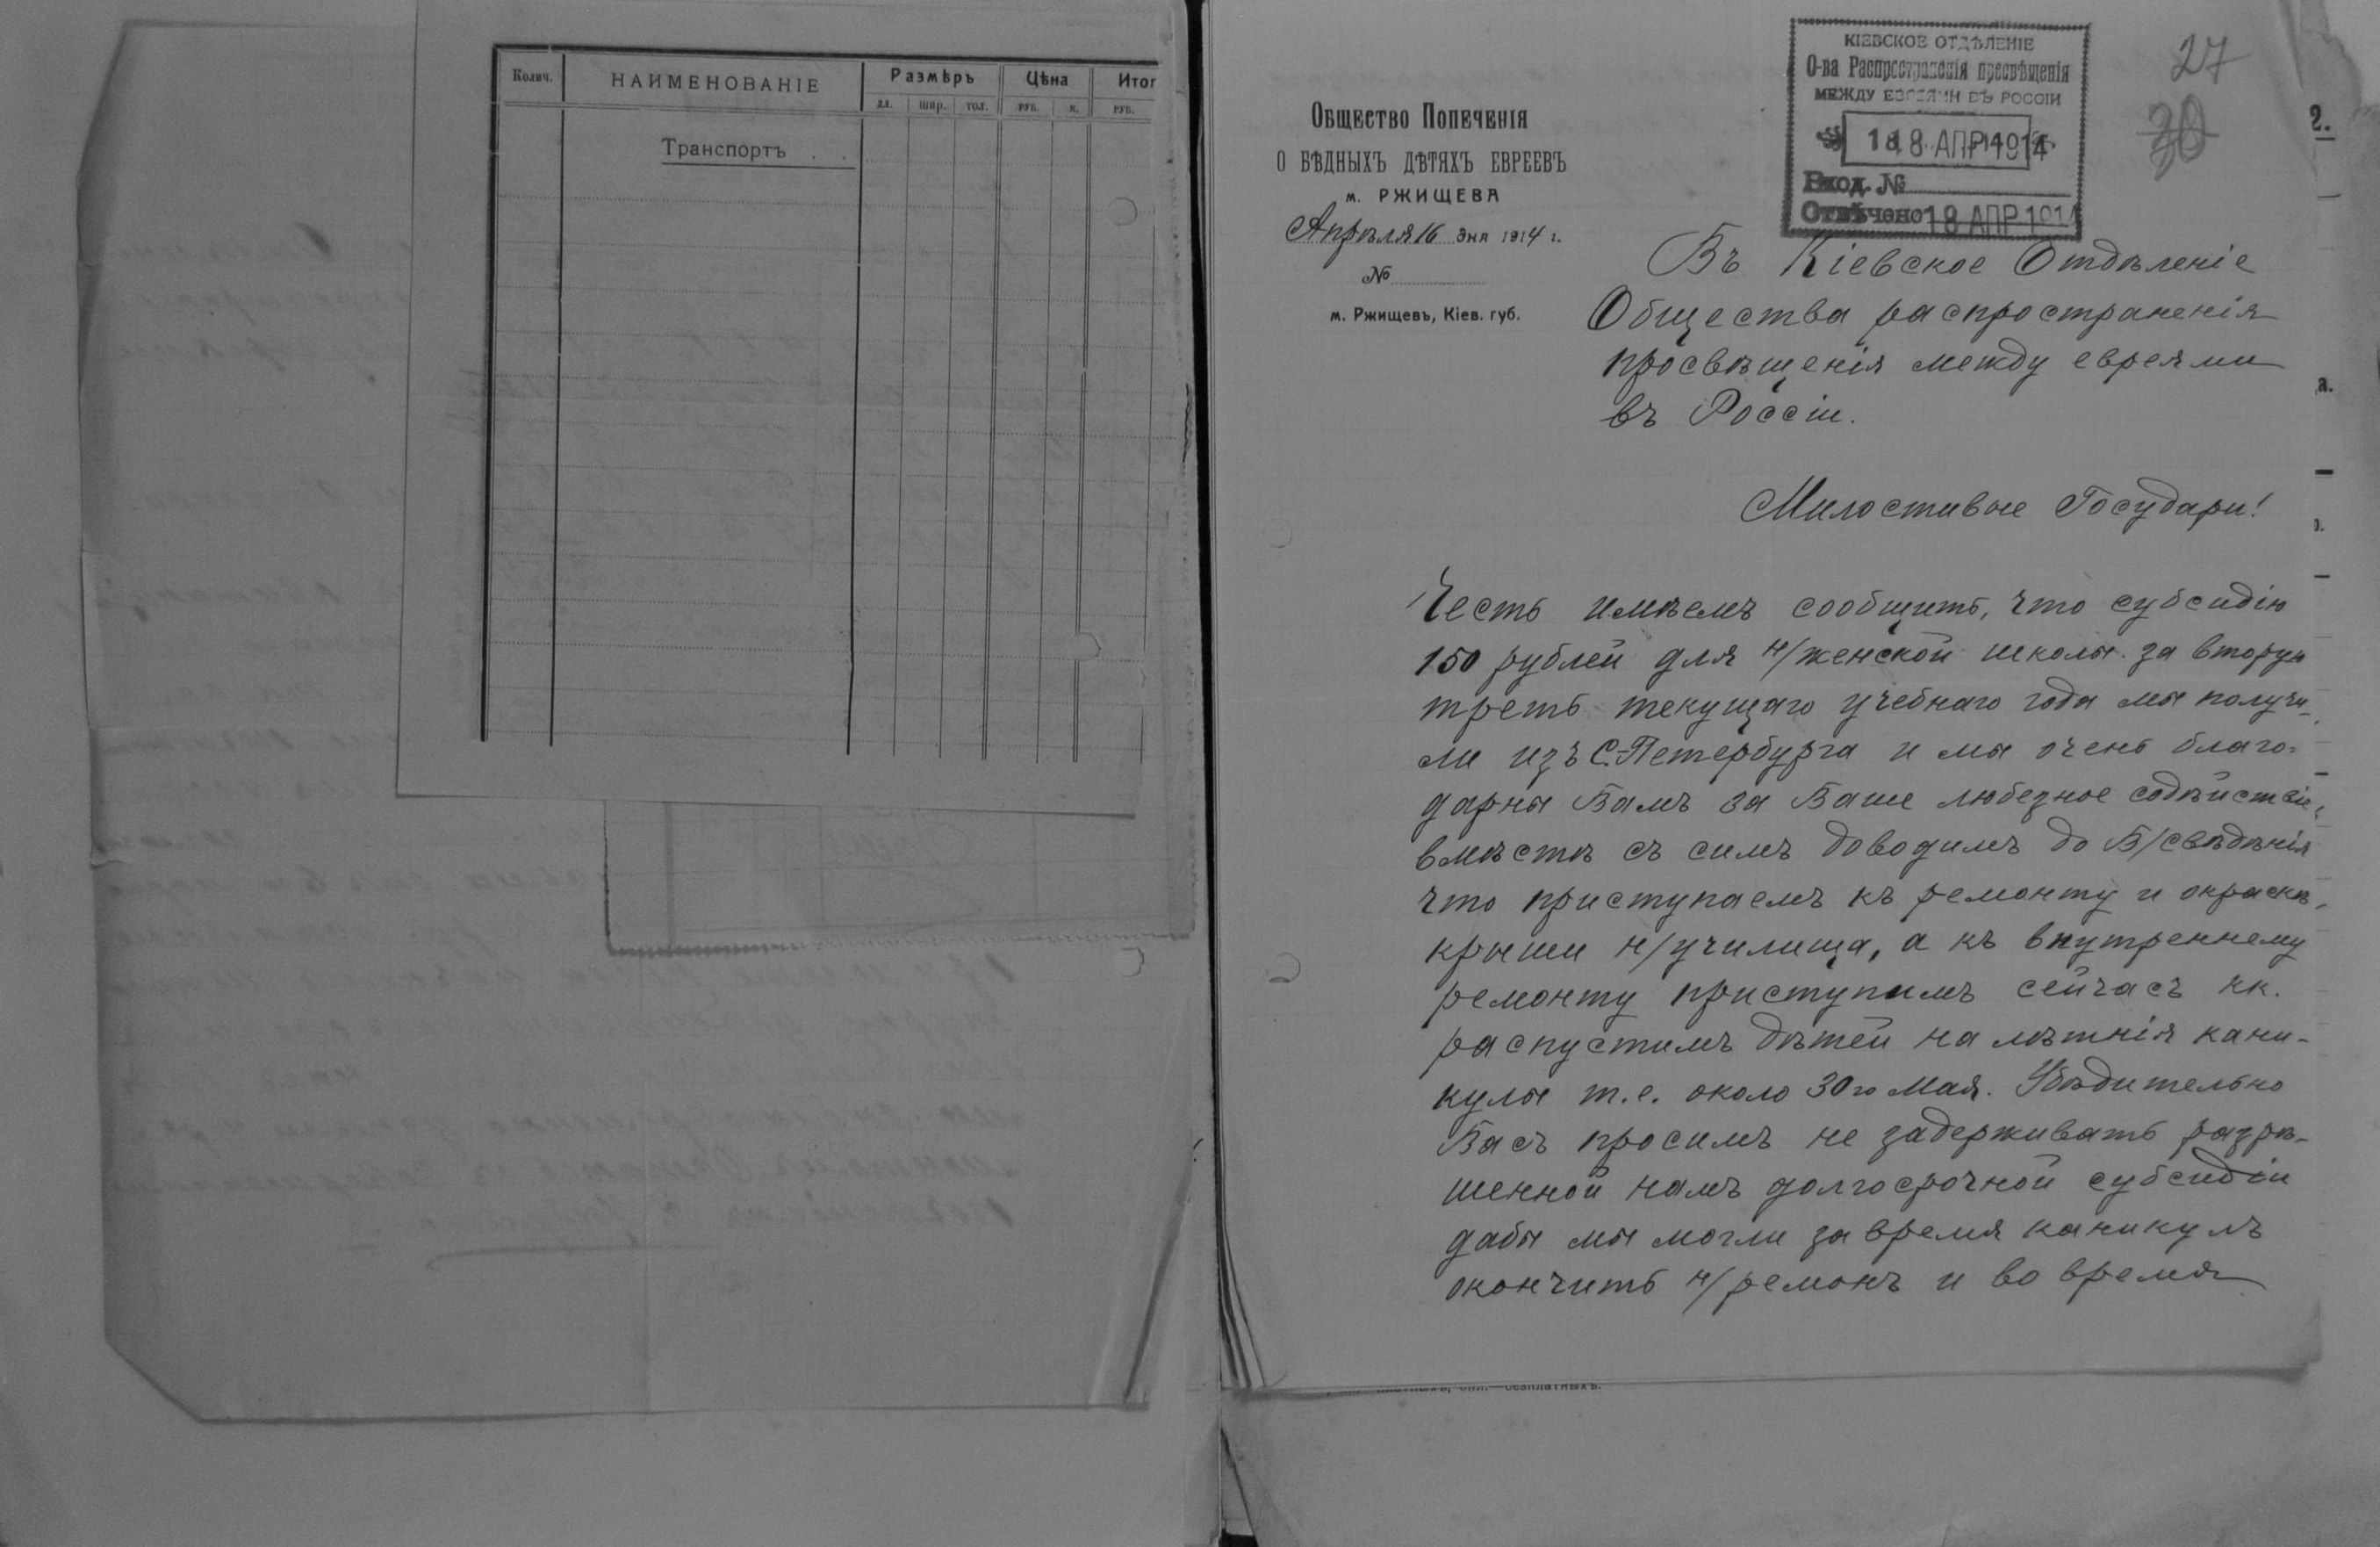 Колич.
НАИМЕНОВАНІЕ
Размѣръ
Цѣна
Итог
дл. шир. тол. руб. к. руб.
Транспортъ . .
КІЕВСКОЕ ОТДѢЛЕНІЕ
О-ва Распространенія просвѣщенія
МЕЖДУ ЕВРЕЯМИ ВЪ РОССІИ
18 АПР 1914
Вход. №
Отвѣчено 18 АПР 1914
27
30
2.
а.
Общество Попеченія
О БѢДНЫХЪ ДѢТЯХЪ ЕВРЕЕВЪ
м. РЖИЩЕВА
Апрѣля 16 дня 1914 г.
№
м. Ржищевъ, Кіев. губ.
Въ Кіевское Отдѣленіе
Общества распространенія
просвѣщенія между евреями
въ Россіи.
Милостивые Государи!
Честь имѣемъ сообщить, что субсидію
150 рублей для н/женской школы за вторую
треть текущаго учебнаго года мы получи-
ли изъ С.-Петербурга и мы очень благо-
дарны Вамъ за Ваше любезное содѣйствіе,
вмѣстѣ съ симъ доводимъ до В/свѣдѣнія
что приступаемъ къ ремонту и окраскѣ,
крыши н/училища, а къ внутреннему
ремонту приступимъ сейчасъ кк.
распустимъ дѣтей на лѣтнія кани-
кулы т.е. около 30го Мая. Убѣдительно
Васъ просимъ не задерживать разрѣ-
шенной намъ долгосрочной субсидіи
дабы мы могли за время каникулъ
окончить н/ремонъ и во время
безплатныхъ.